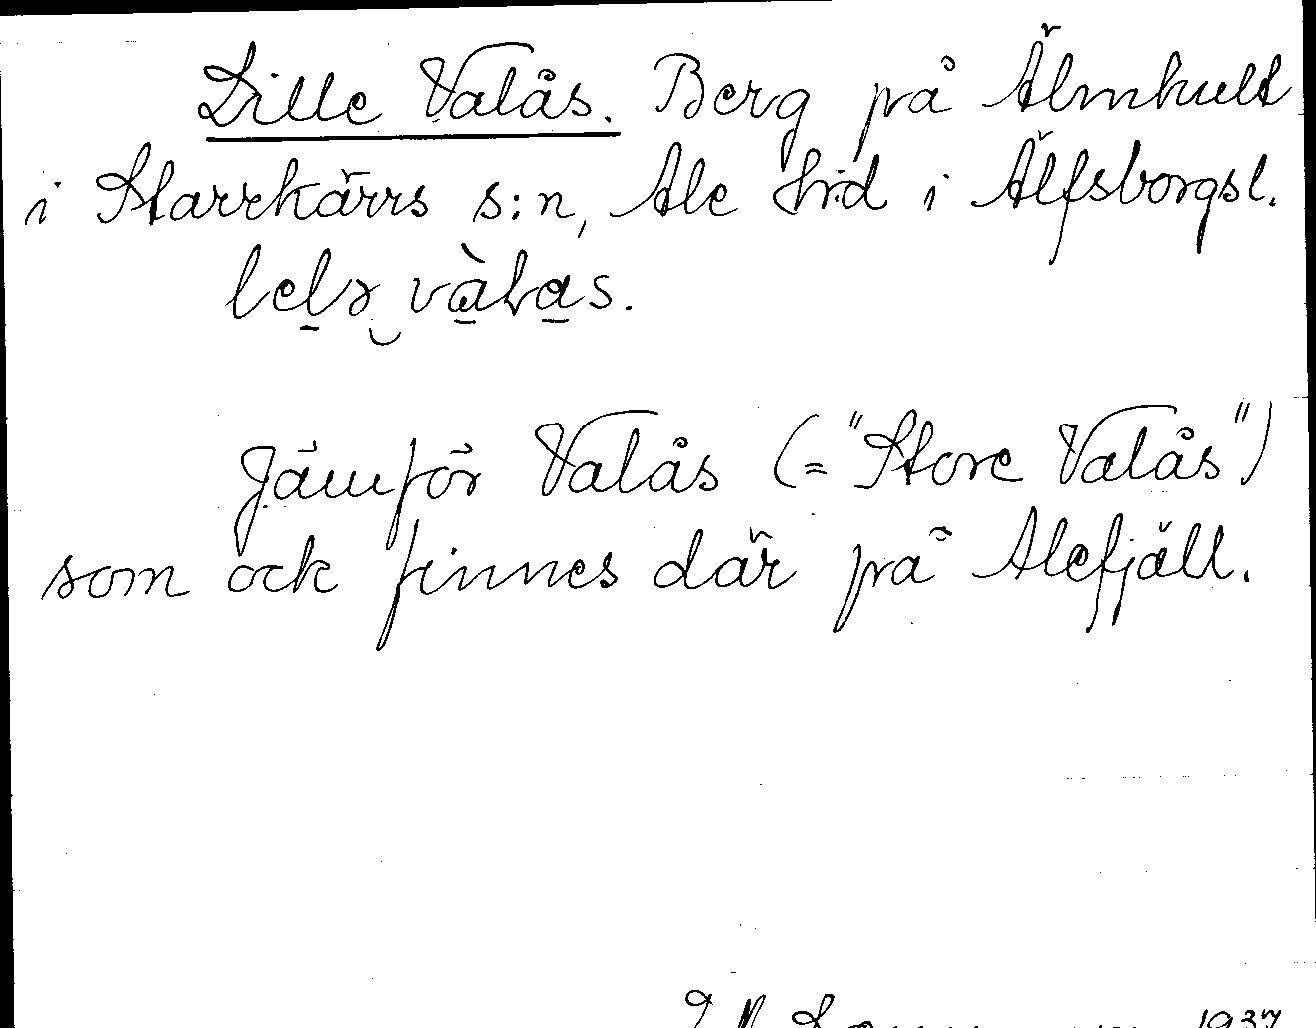 Lille Valås. Berg på Älmhult
i Starrkärrs s:n, Ale hrd i Älfsborgsl.
Jämför Valås (= "Store Valås")
som ock finnes där på Alefjäll.
1937